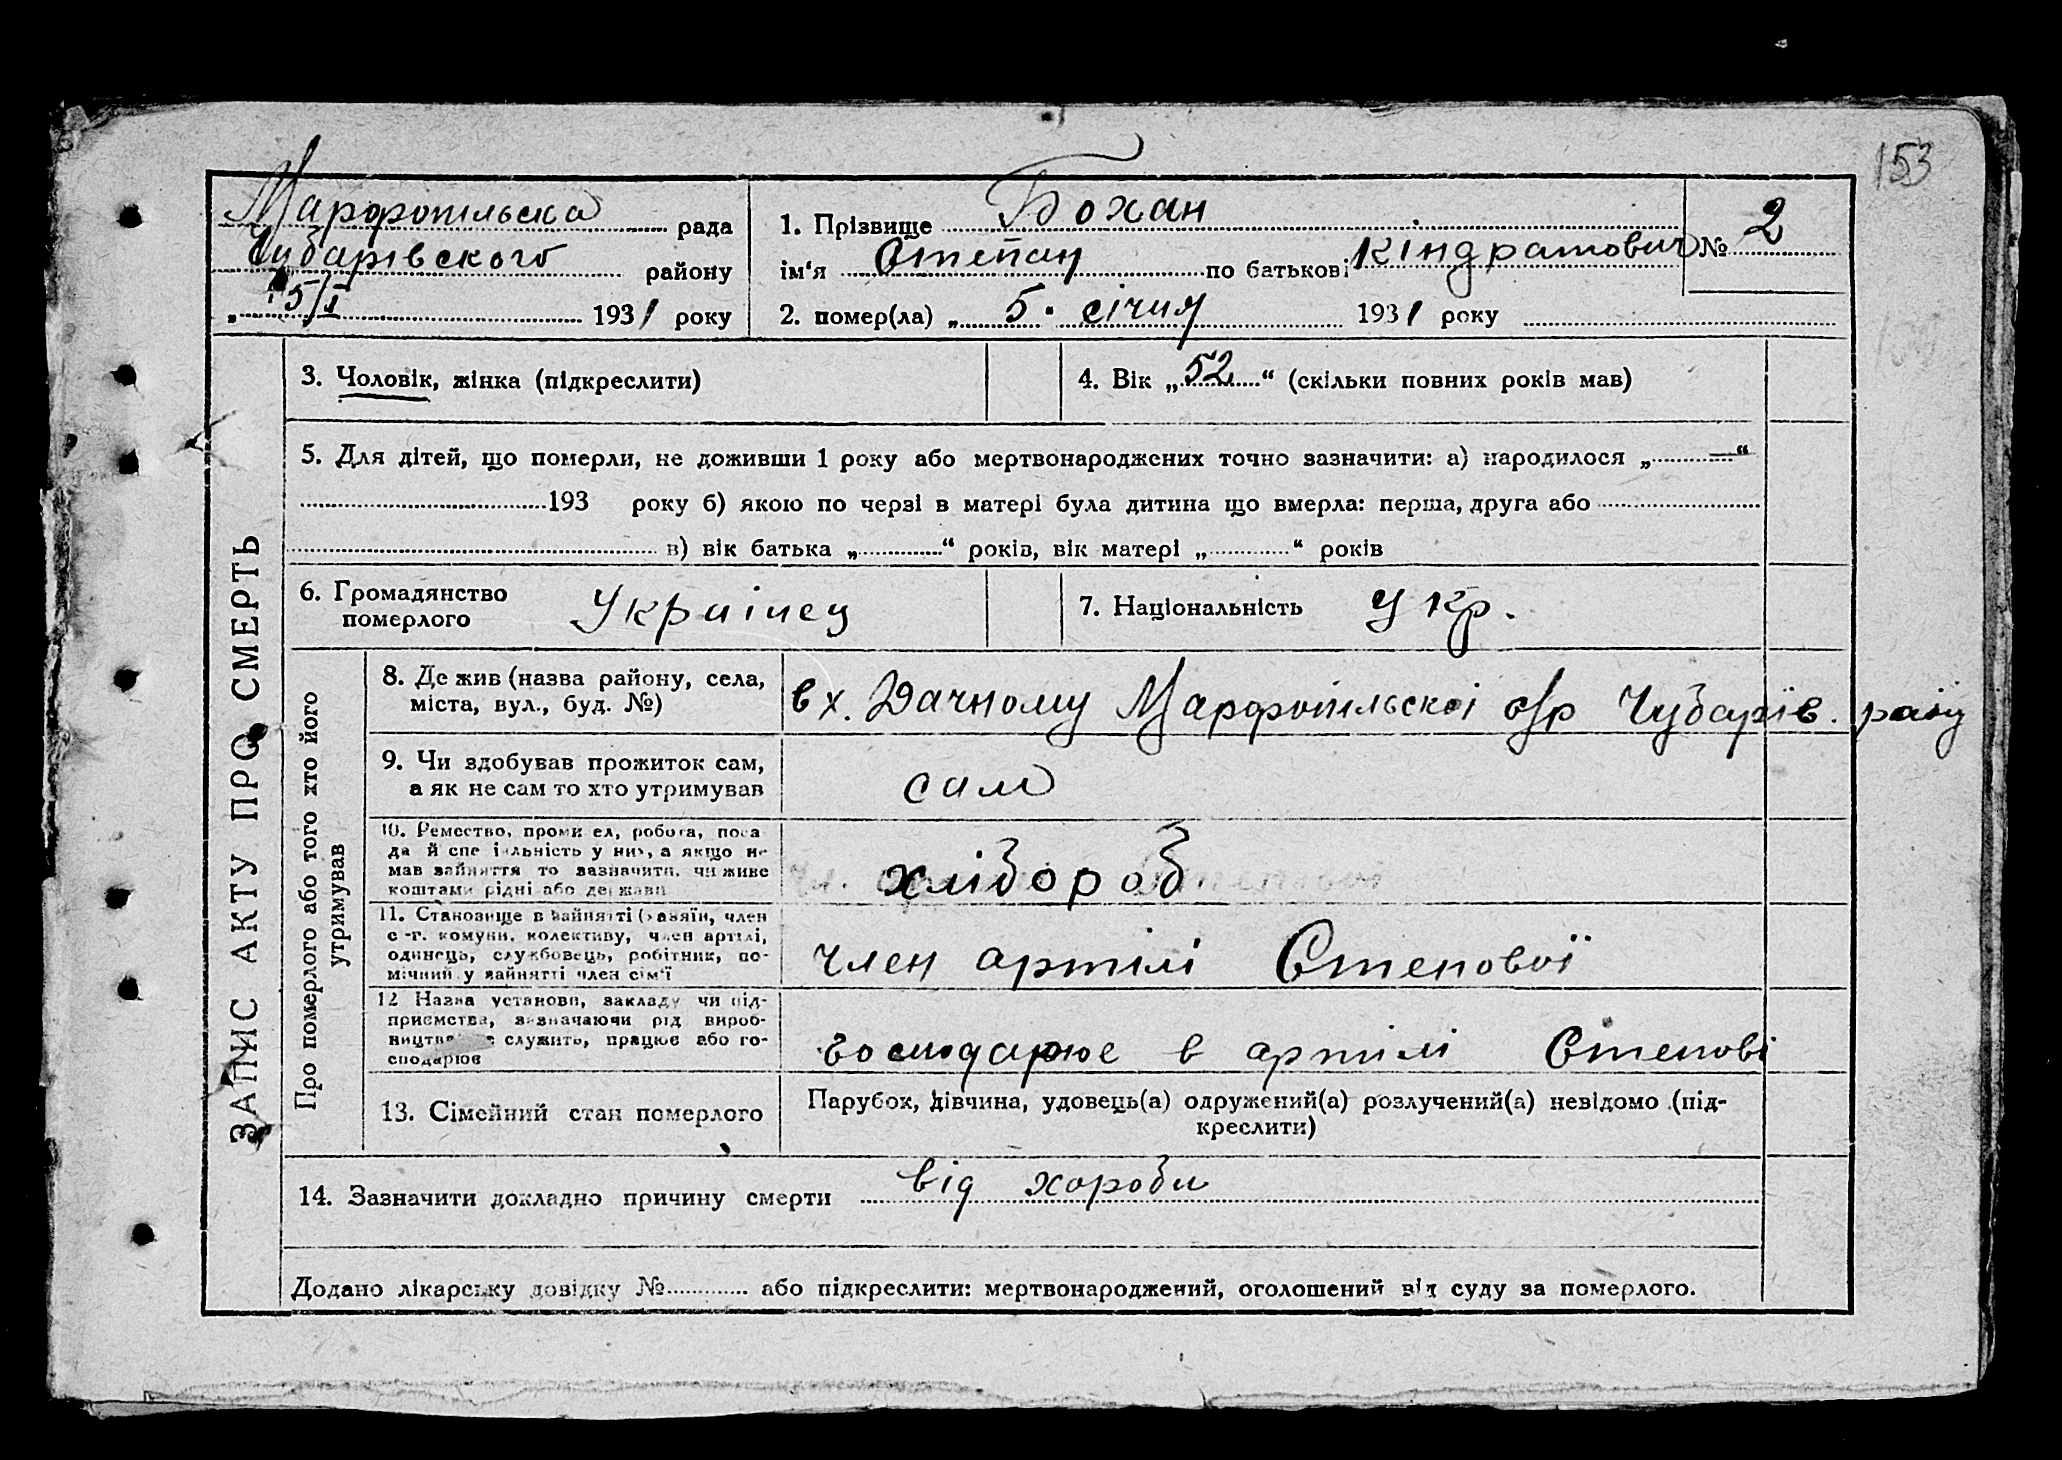 153
Марфопільска рада
Чубарівского району
„ 15/I 1931 року
1. Прізвище Бохан
ім‘я Степан по батькові Кіндратович № 2
2. помер(ла) „ 5 " січня 1931 року
ЗАПИС АКТУ ПРО СМЕРТЬ
3. Чоловік, жінка (підкреслити)
4. Вік „ 52 “ (скільки повних років мав)
5. Для дітей, що померли, не доживши 1 року або мертвонароджених точно зазначити: а) народилося „ — “
193 року б) якою по черзі в матері була дитина що вмерла: перша, друга або
в) вік батька „ “ років, вік матері „ “ років
6. Громадянство
померлого Украінец
7. Національність Укр.
Про померлого або того хто його
утримував
8. Де жив (назва району, села,
міста, вул., буд. №)
в х. Дачному Марфопільскоі с/р Чубарів. раїу
9. Чи здобував прожиток сам,
а як не сам то хто утримував
сам
10. Ремество, проми ел, робота, поса
да й спе іяльність у них, а якщо не
мав зайняття то зазначити, чи живе
коштами рідні або держави
хлібороб
11. Становище в зайнятті (хазяїн, член
с.-г. комуни, колективу, член артілі,
одинець, службовець, робітник, по-
мічний у зайнятті член сім‘ї
член артілі Степовоі
12 Назва установи, закладу чи під-
приємства, зазначаючи рід вироб-
ництва служить, працює або го-
сподарює
господарює в артілі Степові
13. Сімейний стан померлого
Парубок, дівчина, удовець(а) одружений(а) розлучений(а) невідомо (під-
креслити)
14. Зазначити докладно причину смерти від хороби
Додано лікарську довідку № або підкреслити: мертвонароджений, оголошений від суду за померлого.